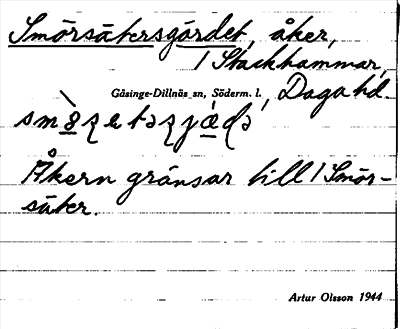 Smörsätersgärdet, åker,
1 Stackhammar,
Gåsinge-Dillnäs sn, Söderm. l. Daga hd.
Åkern gränsar till 1 Smör-
säter.
Artur Olsson 1944